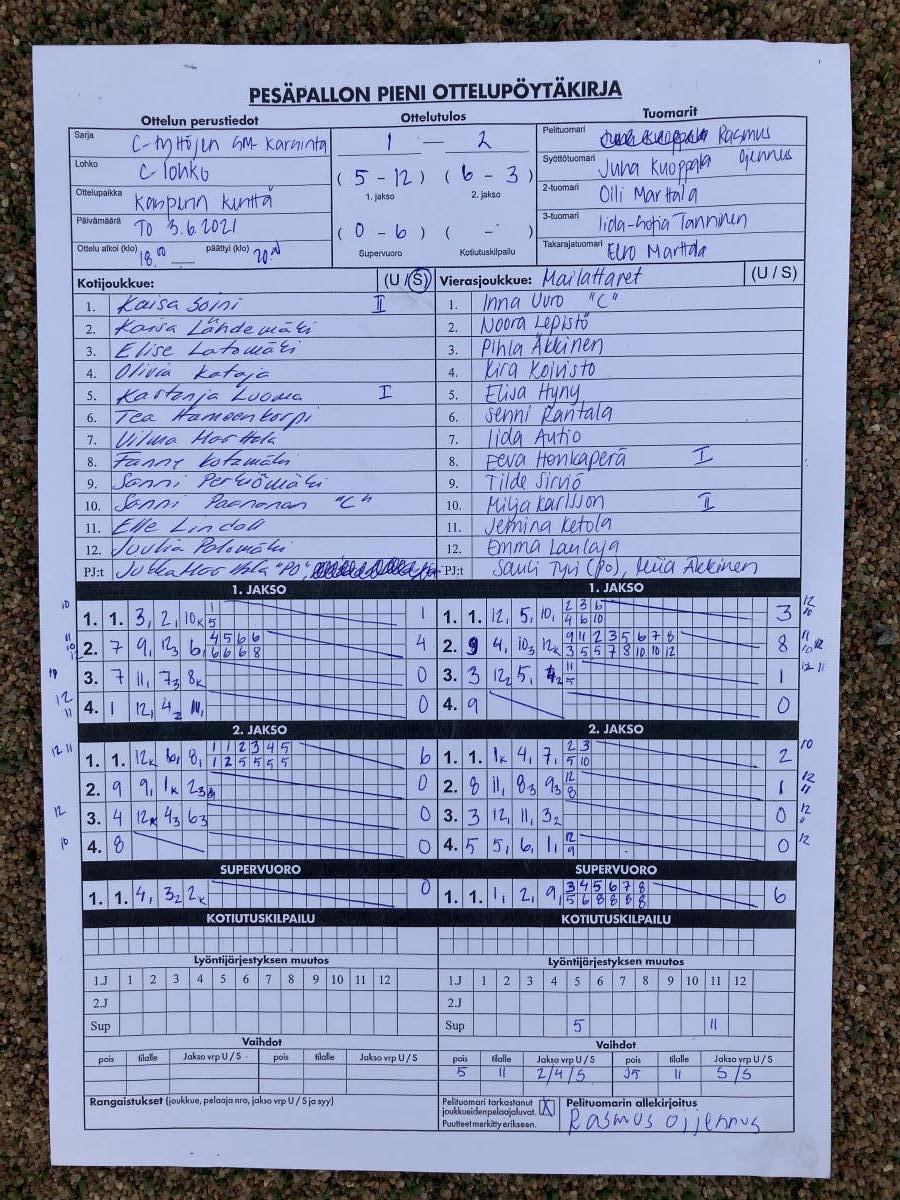 PESÄPALLON PIENI OTTELUPÖYTÄKIRJA
Ottelun perustiedot
Ottelutulos
Tuomarit
Sarja C-tyttöjen SM-karsinta
Lohko C lohko
Ottelupaikka kenttä
Päivämäärä TO 3.6.2021
Ottelu alkoi (klo) 18.00 päättyi (klo)
1 — 2
( 5 - 12 ) ( 6 - 3 )
1. jakso 2. jakso
( 0 - 6 ) ( - )
Supervuoro Kotiutuskilpailu
Pelituomari Rasmus Ojennus
Syöttötuomari Juha Kuoppala
2-tuomari Olli Marttala
3-tuomari Iida-Sofia Tanninen
Takarajatuomari Eero Marttala
Kotijoukkue: (U / S)
1. Kaisa Soini II
2. Kaisa Lähdemäki
3. Elise Latomäki
4. Olivia Kataja
5. Kastanja Luoma I
6. Tea Hameenkorpi
7. Vilma
8. Fanny Kotamäki
9. Sanni Perkiömäki
10. Sanni Paananen "C"
11. Elle Lindell
12. Juulia Palomäki
PJ:t "PO",
Vierasjoukkue: Mailattaret (U / S)
1. Inna Uuro "C"
2. Noora Lepistö
3. Pihla Äkkinen
4. Kira Koivisto
5. Elisa Hyny
6. Senni Rantala
7. Iida Autio
8. Eeva Honkaperä I
9. Tilde Sirviö
10. Milja Karlsson II
11. Jemina Ketola
12. Emma Laulaja
PJ:t Sauli Tyvi (po), Miia Äkkinen
1. JAKSO
1. 1. 3, 2, 10k 1
2. 7 9, 12₃ 6, 4 5 6 6 4
6 6 6 8
3. 7 11, 7₃ 8k 0
4. 1 12, 4₂ 0
2. JAKSO
1. 1. 12k 6, 8, 1 1 2 3 4 5 6
1 2 5 5 5 5
2. 9 9, 1k 0
3. 4 12k 4₃ 6₃ 0
4. 8 0
SUPERVUORO
1. 1. 4, 3₂ 2k 0
KOTIUTUSKILPAILU
1. JAKSO
1. 1. 12, 5, 10, 2 3 6 3
4 6 10
2. 9 4, 10₃ 12k 9 11 2 3 5 6 7 8 8
3 5 5 7 8 10 10 12
3. 3 12₂ 5, 11 1
5
4. 9 0
2. JAKSO
1. 1. 1k 4, 7, 2 3 2
5 10
2. 8 11, 8₃ 9₃ 12 1
8
3. 3 12, 11, 3₂ 0
4. 5 5, 6, 1, 12 0
9
SUPERVUORO
1. 1. 1, 2, 9, 3 4 5 6 7 8 6
5 6 8 8 8 8
KOTIUTUSKILPAILU
Lyöntijärjestyksen muutos
1.J 1 2 3 4 5 6 7 8 9 10 11 12
2.J
Sup
Vaihdot
pois tilalle Jakso vrp U / S pois tilalle Jakso vrp U / S
Lyöntijärjestyksen muutos
1.J 1 2 3 4 5 6 7 8 9 10 11 12
2.J
Sup 5 11
Vaihdot
pois tilalle Jakso vrp U / S pois tilalle Jakso vrp U / S
5 11 2/4/S 11 S/S
Rangaistukset (joukkue, pelaaja nro, jakso vrp U / S ja syy)
Pelituomari tarkastanut
joukkueidenpelaajaluvat. X
Puutteet merkitty erikseen.
Pelituomarin allekirjoitus
Rasmus Ojennus